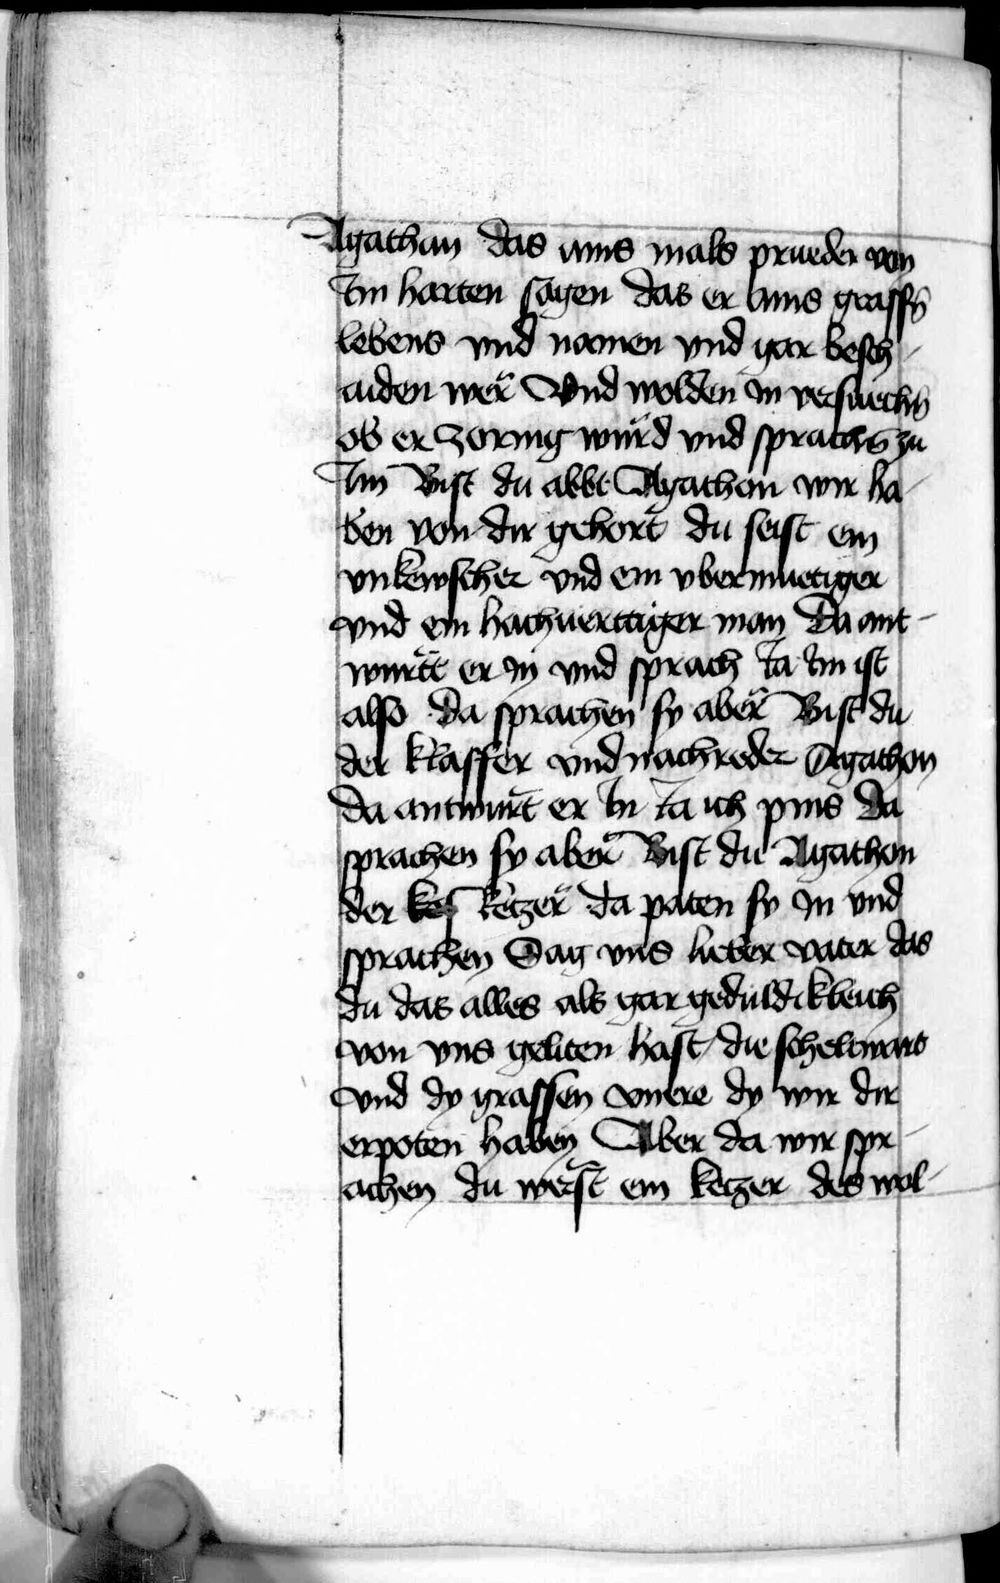 Agathan das ains mals prueder von
Im harten sagen das er ains grassn̄
lebens vnd namen vnd gar besch-
aiden wer Vnd wolden In versuechn̄
ob er zornig wurd vnd sprachn̄ zu
Im Bist du abbt Agathon wir ha-
ben von dir gehort du seist ein
vnkewscher vnd ein vbermuetiger
vnd ein hachuerttiger man Da ant-
wurtt er In vnd sprach Ia Im ist
also Da sprachen sy aber Bist du
der klaffer vnd nachreder Agathon
da antwurt er In Ia ich pins Da
sprachen sy aber Bist du Agathon
der ketzer da paten sy In vnd
sprachen Sag vns lieber vater das
du das alles als gar geduldikleich
von vns geliten hast die scheltwart
vnd dy grassen vnere dy wir dir
erpoten haben Aber da wir spr-
achen du werst ein ketzer des wol-